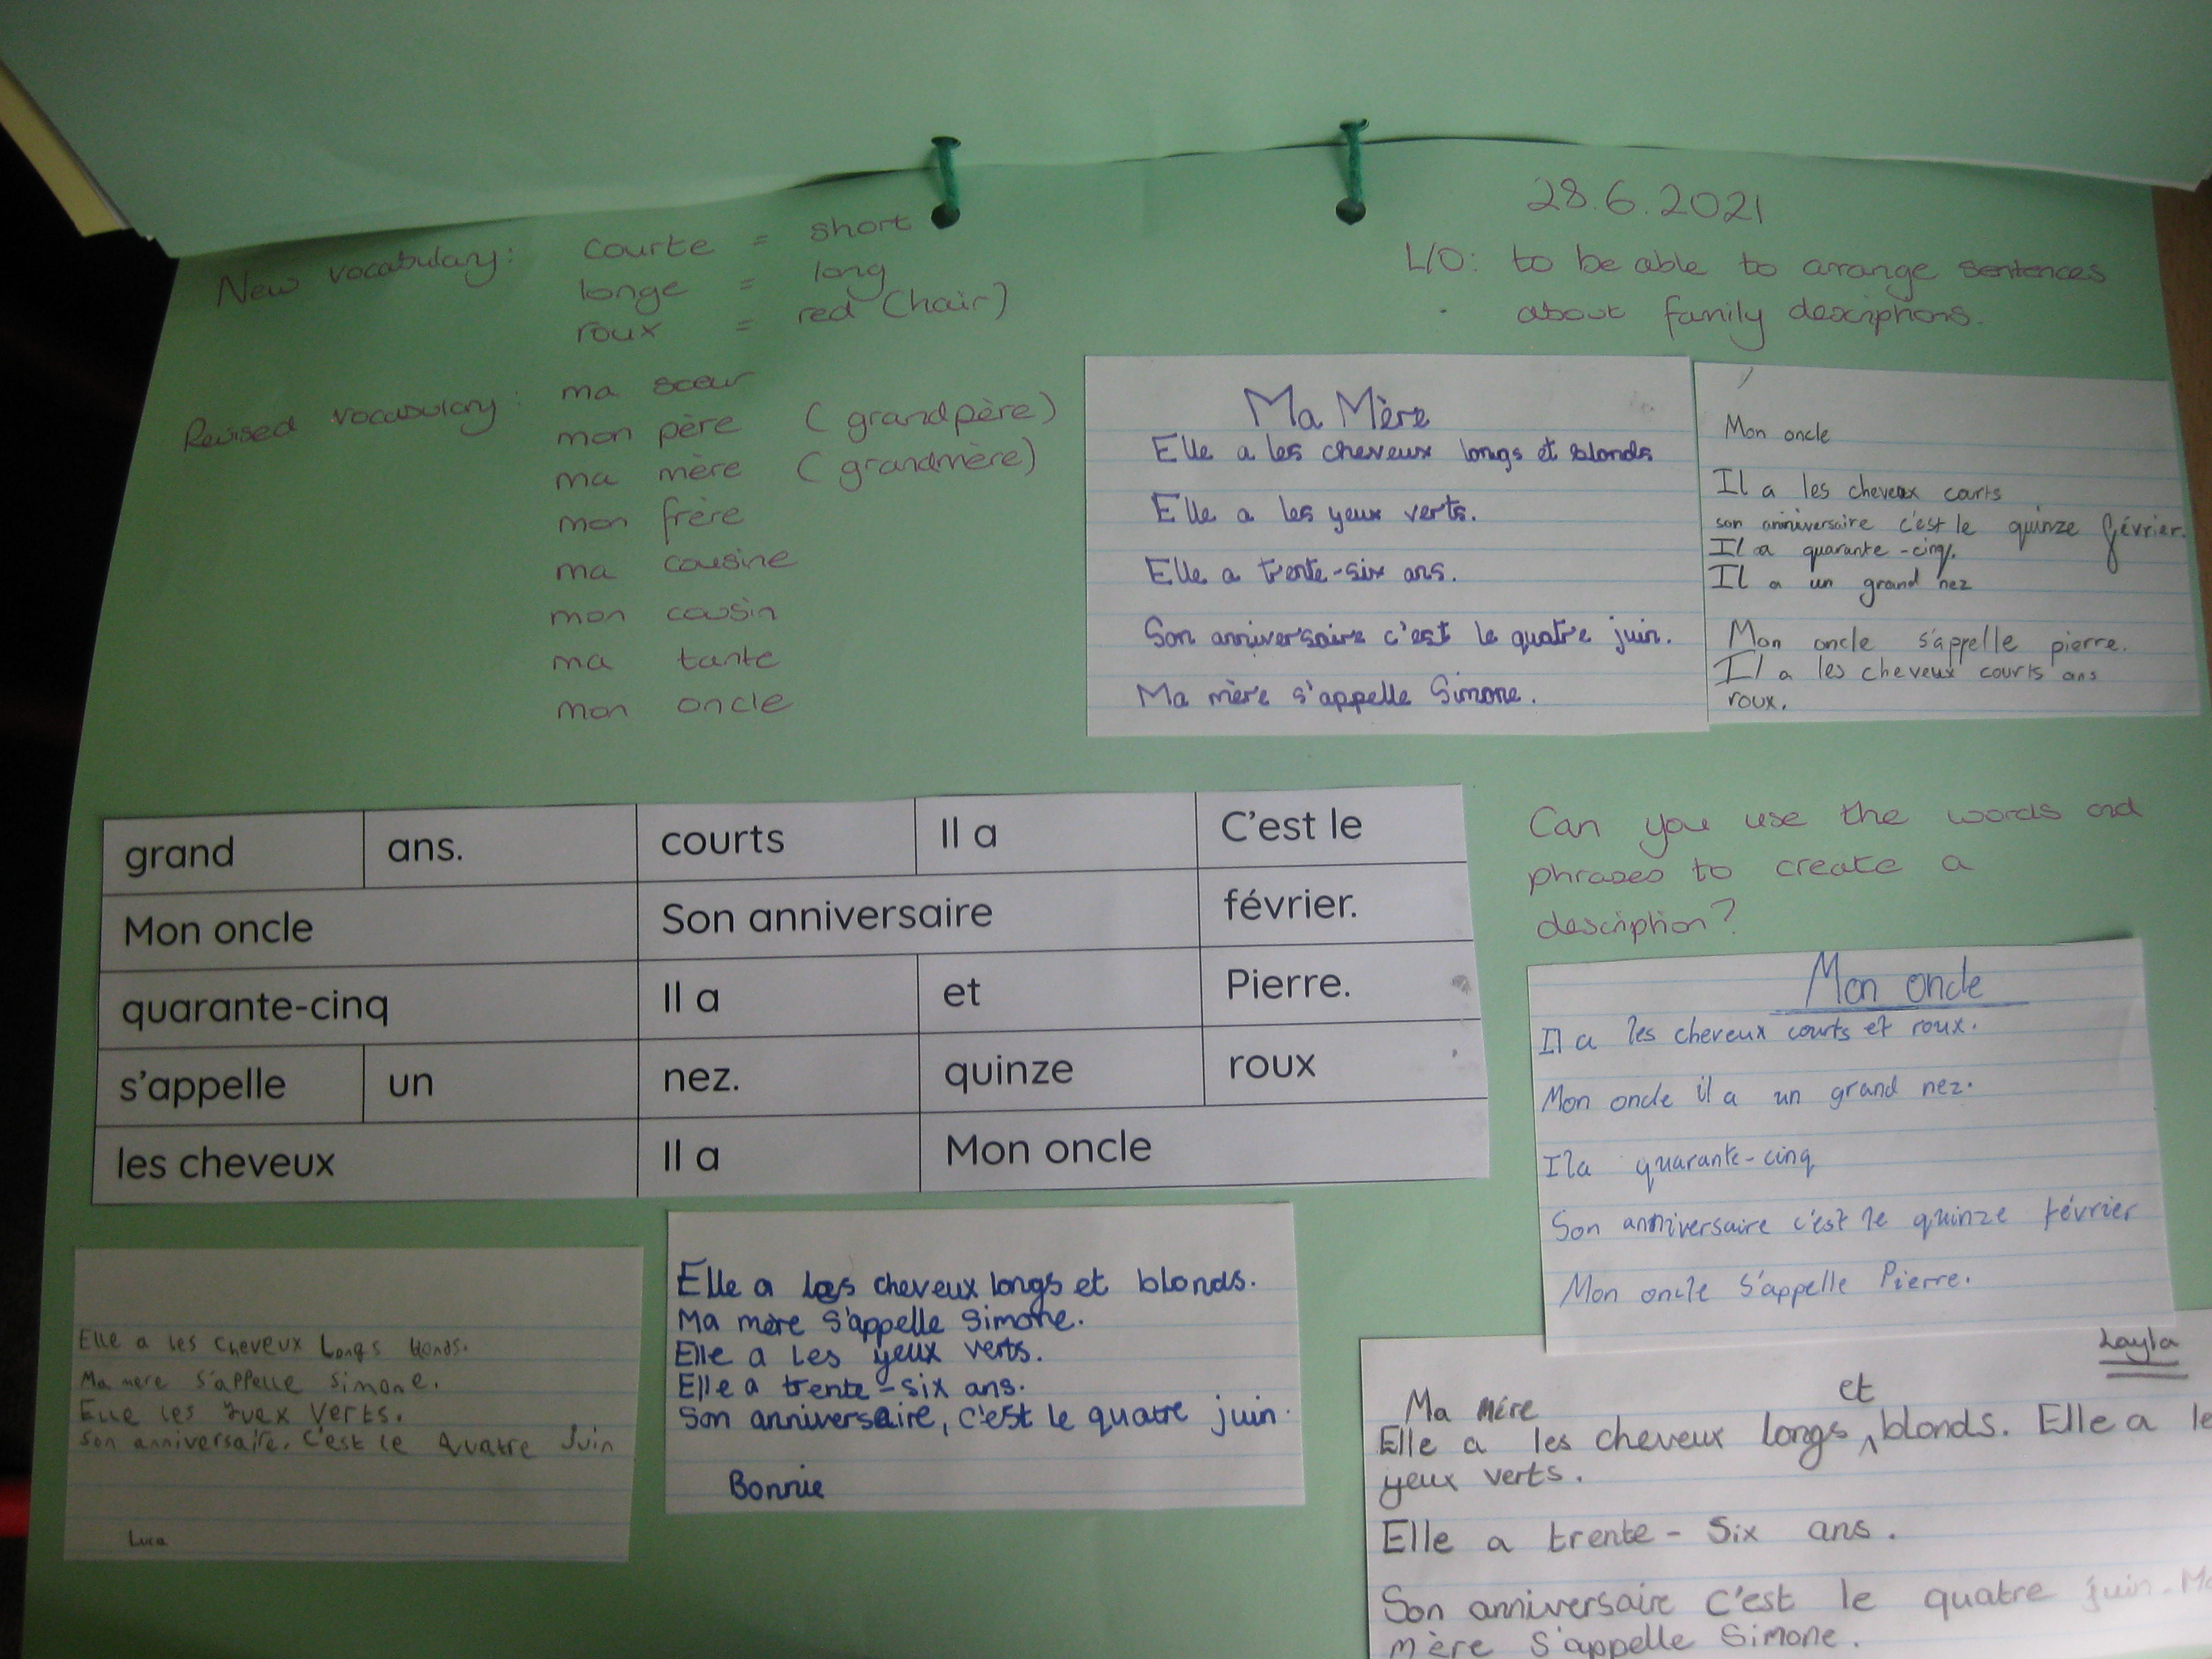 New vocabulary: courte = short
longe = long
roux = red (hair)
Revised vocabulary: ma sœur
mon père (grandpère)
ma mère (grandmère)
mon frère
ma cousine
mon cousin
ma tante
mon oncle
28.6.2021
L/O: to be able to arrange sentences
about family descriptions.
Ma Mère
Elle a les cheveux longs et blonds
Elle a les yeux verts.
Elle a trente-six ans.
Son anniversaire c'est le quatre juin.
Ma mère s'appelle Simone.
Mon oncle
Il a les cheveux courts
son anniversaire c'est le quinze février.
Il a quarante-cinq.
Il a un grand nez
Mon oncle s'appelle pierre.
Il a les cheveux courts ans
roux.
grand ans. courts Il a C'est le
Mon oncle Son anniversaire février.
quarante-cinq Il a et Pierre.
s'appelle un nez. quinze roux
les cheveux Il a Mon oncle
Can you use the words and
phrases to create a
description?
Mon oncle
Il a les cheveux courts et roux.
Mon oncle il a un grand nez.
Il a quarante-cinq
Son anniversaire c'est le quinze février
Mon oncle s'appelle Pierre.
Elle a les cheveux Longs blonds.
Ma mere s'appelle simone.
Elle les yuex verts.
Son anniversaire. C'est le quatre Juin
Luca
Elle a les cheveux longs et blonds.
Ma mère s'appelle Simone.
Elle a les yeux verts.
Elle a trente-six ans.
Son anniversaire, c'est le quatre juin.
Bonnie
Layla
Ma Mére
Elle a les cheveux longs et blonds. Elle a le
yeux verts.
Elle a trente-Six ans.
Son anniversaire C'est le quatre juin. Ma
mère s'appelle Simone.